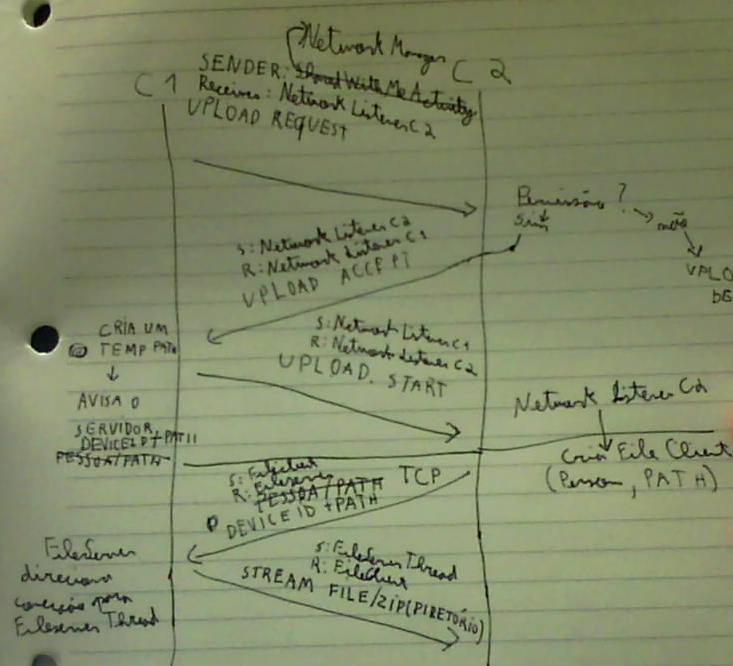 Network Manager
C1
SENDER: SharedWithMeActivity
C2
Receiver: Network Listener C2
UPLOAD REQUEST
Permissão?
Sim
não
S: Network Listener C2
R: Network Listener C1
UPLOAD ACCEPT
UPLO
DE
CRIA UM
TEMP PATH
AVISA O
SERVIDOR
DEVICEID+PATH
PESSOA/PATH
S: Network Listener C1
R: Network Listener C2
UPLOAD START
Network Listener C2
Cria File Client
(Person, PATH)
S: FileClient
R: FileServer
PESSOA/PATH
TCP
DEVICE ID + PATH
FileServer
direciona
conexão para
Fileserver Thread
S: FileServer Thread
R: FileClient
STREAM FILE/ZIP(DIRETÓRIO)